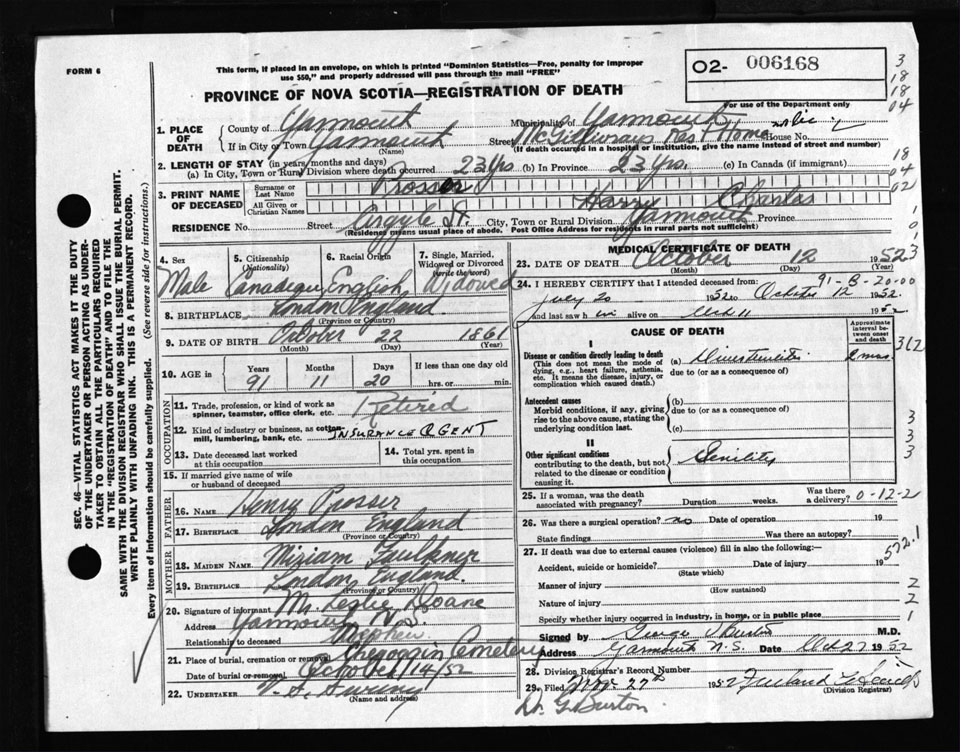 FORM 6
This form, if placed in an envelope, on which is printed "Dominion Statistics—Free, penalty for improper
use $50," and properly addressed will pass through the mail "FREE"
O2- 006168
PROVINCE OF NOVA SCOTIA—REGISTRATION OF DEATH
For use of the Department only
1. PLACE OF DEATH
County of Yarmouth Municipality of Yarmouth
If in City or Town Yarmouth Street McGillivrays Rest Home House No.
(Name) (If death occurred in a hospital or institution, give the name instead of street and number)
2. LENGTH OF STAY (in years, months and days)
(a) In City, Town or Rural Division where death occurred 23 yrs (b) In Province 23 yrs. (c) In Canada (if immigrant)
3. PRINT NAME OF DECEASED
Surname or Last Name Prosser
All Given or Christian Names Harry Charles
RESIDENCE No. Street Argyle St. City, Town or Rural Division Yarmouth Province
(Residence means usual place of abode. Post Office Address for residents in rural parts not sufficient)
4. Sex
5. Citizenship (Nationality)
6. Racial Origin
7. Single, Married, Widowed or Divorced (write the word)
Male Canadian English Widowed
8. BIRTHPLACE London England
(Province or Country)
9. DATE OF BIRTH October 22 1861
(Month) (Day) (Year)
10. AGE in Years Months Days If less than one day old
91 11 20 hrs. or min.
OCCUPATION
11. Trade, profession, or kind of work as
spinner, teamster, office clerk, etc. Retired
12. Kind of industry or business, as cotton-
mill, lumbering, bank, etc. INSURANCE AGENT
13. Date deceased last worked
at this occupation
14. Total yrs. spent in
this occupation
15. If married give name of wife
or husband of deceased
FATHER
16. NAME Henry Prosser
17. BIRTHPLACE London England
(Province or Country)
MOTHER
18. MAIDEN NAME Miriam Faulkner
19. BIRTHPLACE London, England.
(Province or Country)
20. Signature of informant Mr. Leslie Doane
Address Yarmouth N.S.
Relationship to deceased Nephew
21. Place of burial, cremation or removal Chegoggin Cemetery
Date of burial or removal October 14/52
22. UNDERTAKER
(Name and Address)
MEDICAL CERTIFICATE OF DEATH
23. DATE OF DEATH October 12 1952
(Month) (Day) (Year)
91-B-20-00
24. I HEREBY CERTIFY that I attended deceased from:
July 20 1952 to October 12 1952.
and last saw him alive on Oct 11 195
CAUSE OF DEATH
Approximate interval between onset and death
I
Disease or condition directly leading to death
(This does not mean the mode of
dying, e.g., heart failure, asthenia,
etc. It means the disease, injury, or
complication which caused death.)
(a) 2 mos
due to (or as a consequence of)
Antecedent causes
Morbid conditions, if any, giving
rise to the above cause, stating the
underlying condition last.
(b)
due to (or as a consequence of)
(c)
II
Other significant conditions
contributing to the death, but not
related to the disease or condition
causing it.
Senility
25. If a woman, was the death
associated with pregnancy? Duration weeks. Was there
a delivery? 0-12-2
26. Was there a surgical operation? no Date of operation 19
State findings Was there an autopsy?
27. If death was due to external causes (violence) fill in also the following:—
572.1
Accident, suicide or homicide? Date of injury 19
(State which)
Manner of injury
(How sustained)
Nature of injury
Specify whether injury occurred in industry, in home, or in public place
Signed by George Burton M.D.
Address Yarmouth N.S. Date Oct 27 1952
28. Division Registrar's Record Number
29. Filed Nov. 27th 1952
(Division Registrar)
Dr. G. Burton
SEC. 46—VITAL STATISTICS ACT MAKES IT THE DUTY
OF THE UNDERTAKER OR PERSON ACTING AS UNDER-
TAKER TO OBTAIN ALL THE PARTICULARS REQUIRED
IN THE "REGISTRATION OF DEATH" AND TO FILE THE
SAME WITH THE DIVISION REGISTRAR WHO SHALL ISSUE THE BURIAL PERMIT.
WRITE PLAINLY WITH UNFADING INK. THIS IS A PERMANENT RECORD.
Every item of information should be carefully supplied. (See reverse side for instructions.)
3
18
18
04
18
04
02
1
0
1
3
312
3
3
3
2
2
1